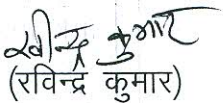 रवीन्द्र कुमार
(रविन्द्र कुमार)